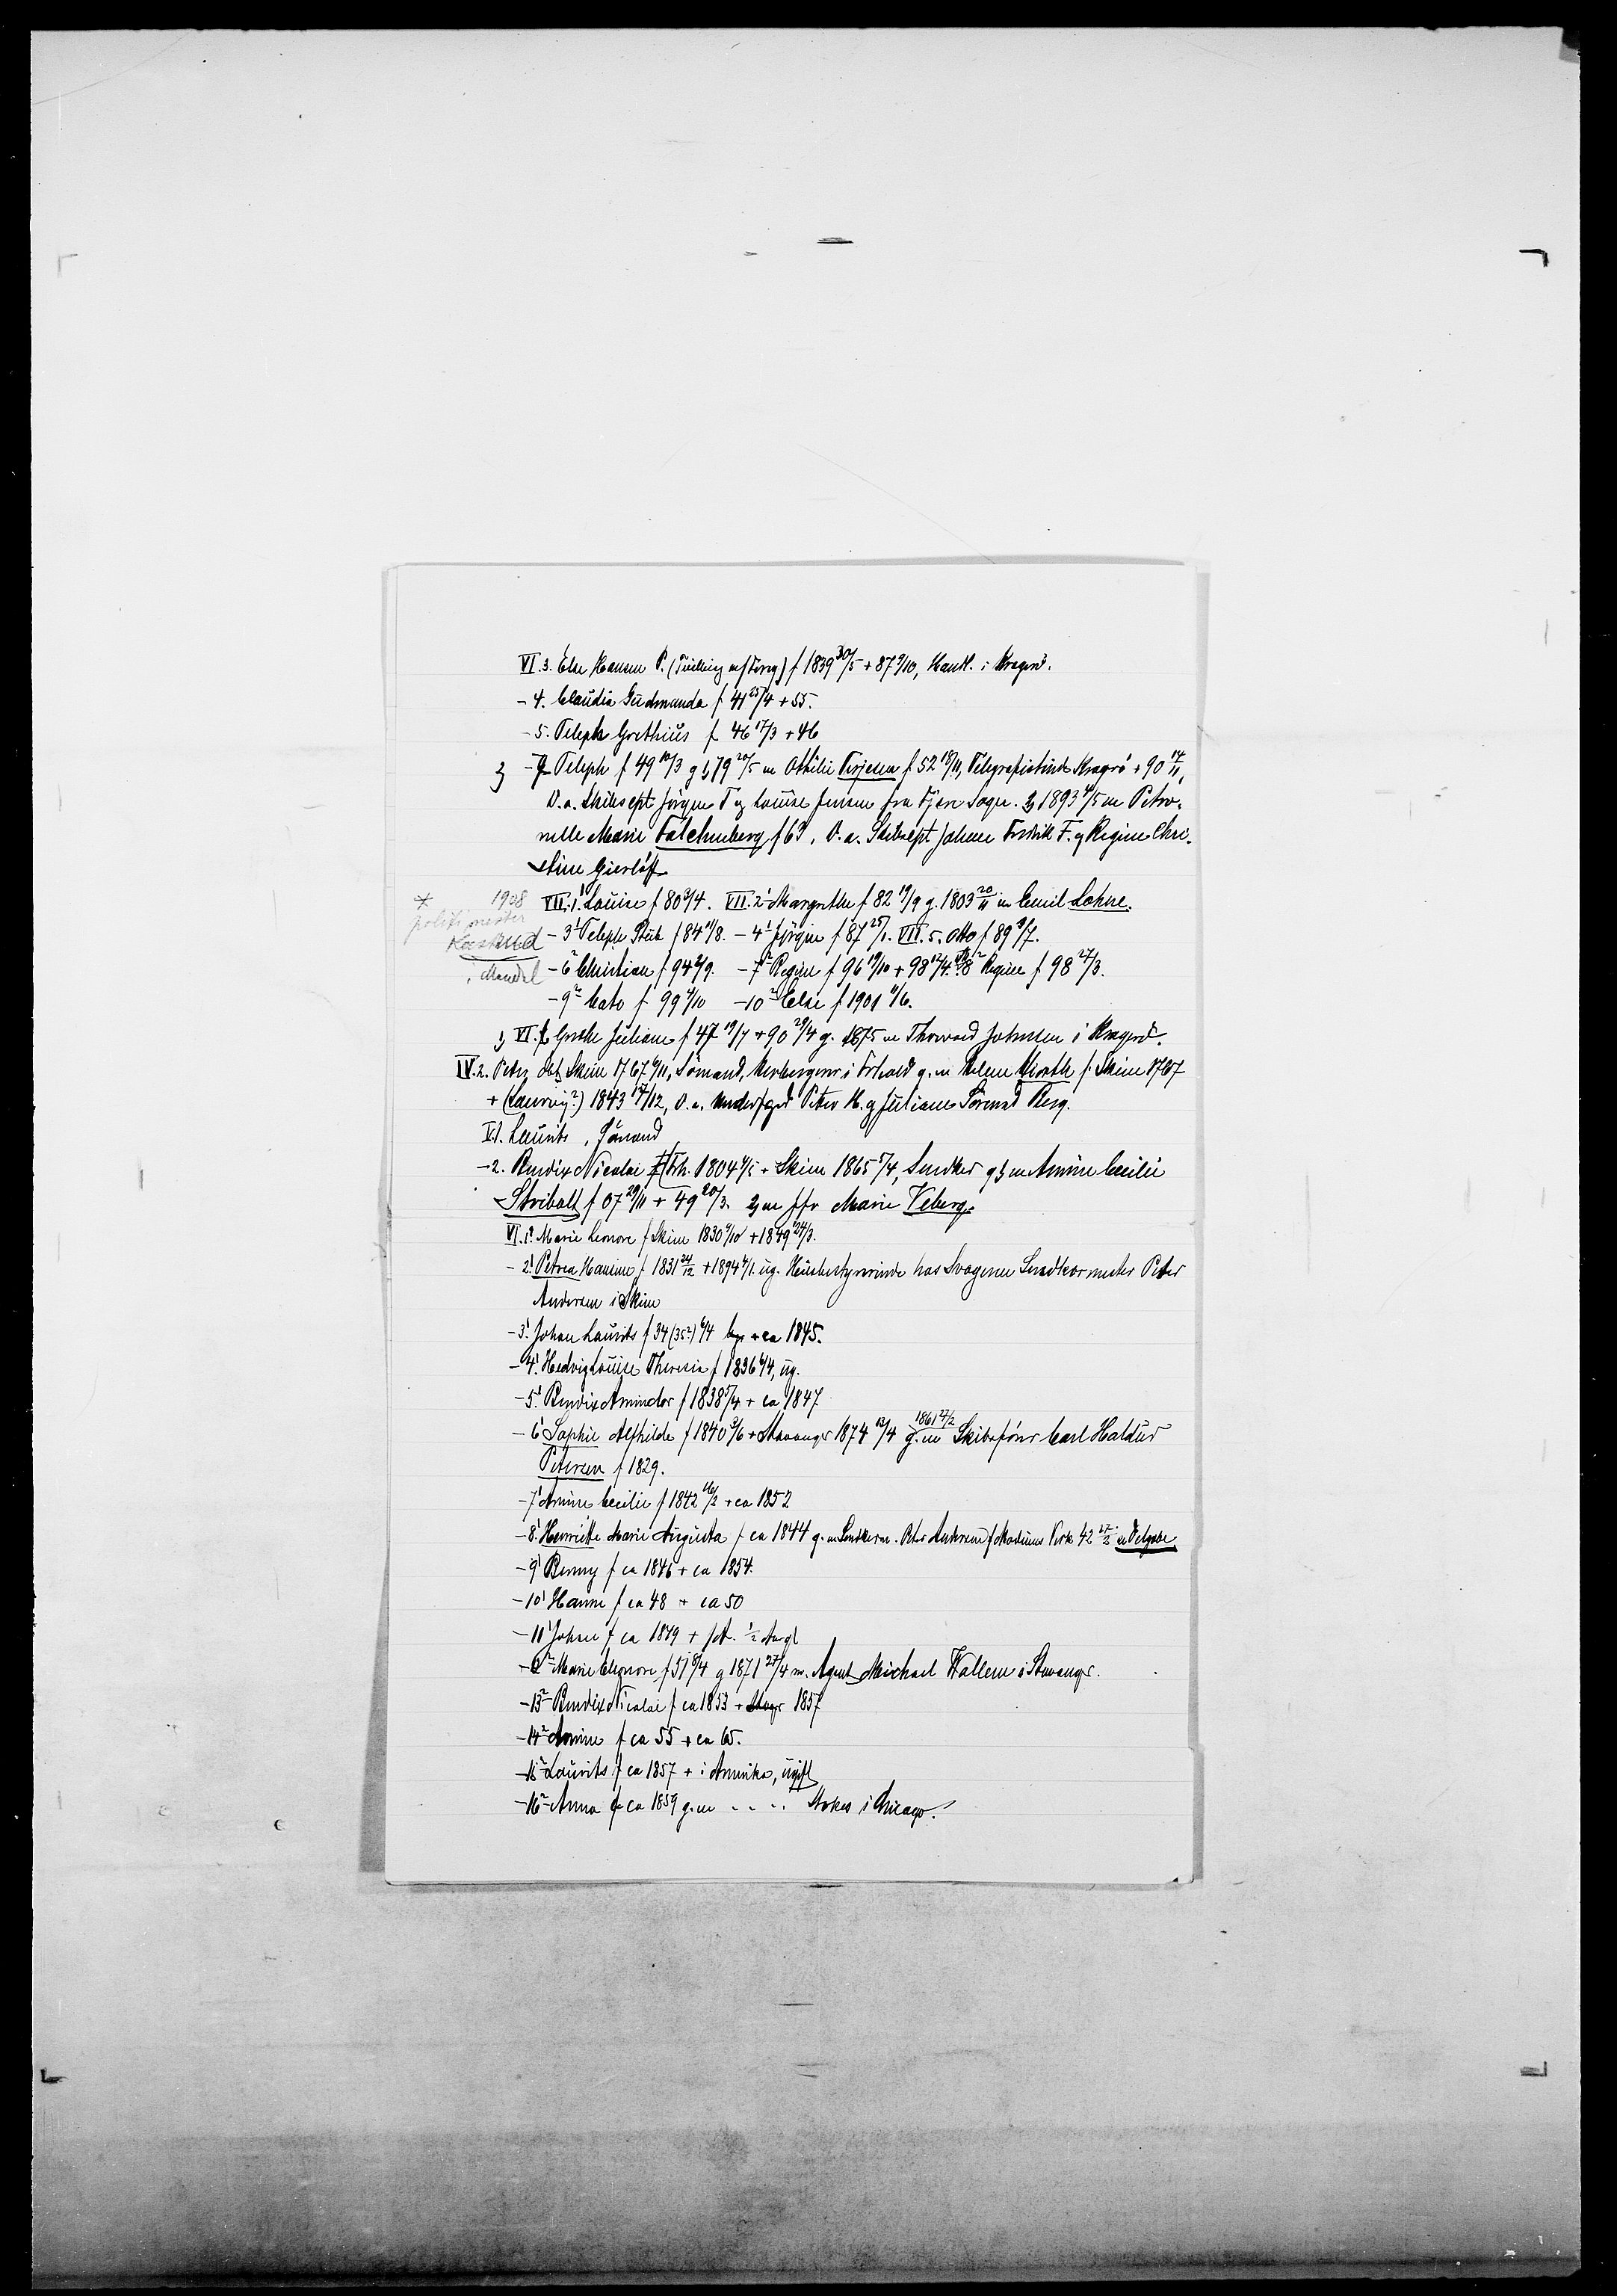 VI.3. Else Hansen P. (Tvilling m/Jørg) f 1839 30/5 + 87 9/10, Handl. i Kragerø.
- 4. Claudia Gudmunda f 41 25/4 + 55.
- 5. Teleph Grethius f 46 17/3 + 46
3) - 7 Teleph f 49 10/3 g 1) 79 20/5 m Othilie Terjesen f 52 18/11, Telegrafistinde Kragerø + 90 14/11,
D.a. Skibscpt Jørgen T og Louise Jensen fra Tjøre Sogn. 2) 1893 4/5 m Petro-
nelle Marie Falchenberg f 63, D.a. Skibscpt Johan Fredrik F. og Regine Chri-
stine Gierløff
* 1938 politimester Kaasund i Mandal
VII.1.¹ Louise f 80 3/4. VII.2¹ Margrethe f 82 19/9 g. 1803 20/11 m Emil Lohne.
- 3¹ Teleph Stub f 84 11/8. - 4¹ Jørgen f 87 25/1. VII.5. Otto f 89 9/7.
- 6² Christian f 94 2/9. - 7² Regine f 96 19/10 + 98 12/4. - 8² Regine f 98 27/3.
- 9² Cato f 99 4/10 - 10² Else f 1901 11/6.
2) VI.6 Grethe Juliane f 47 19/7 + 90 29/4 g. 1875 m Thorvard Johnsen i Kragerø.
IV.2. Peter, dbt Skien 1767 6/11, Sømand, g. m Helene Hjorth f. Skien 1767
+ (Laurvig?) 1843 17/12, D.a. Peter H. og Juliane Berg.
V.1. Laurits, Sømand
- 2. Bendix Nicolai f Frh. 1804 4/5 + Skien 1865 5/4, Snedker g 1) m Amine Cecilie
Stribolt f 07 29/11 + 49 20/3. 2) m Jfr Marie Veberg.
VI.1¹. Marie Leonore f Skien 1830 9/10 + 1849 24/3.
- 2¹. Petrea Hansine f 1831 24/12 + 1894 4/1. ug. Husbestyrerinde hos Svogeren Snedkermester Peter
Andersen i Skien
- 3¹. Johan Laurits f 34 (35?) 6/4 + ca 1845.
- 4¹. Hedvig Louise Theresia f 1836 6/4, ug.
- 5¹. Bendix Amindor f 1838 5/4 + ca 1847
- 6¹ Sophie Alfhilde f 1840 3/6 + Stavanger 1874 13/4 g. 1861 27/2 m Skibsfører Carl Haldur
Petersen f 1829.
- 7¹ Amine Cecilie f 1842 16/2 + ca 1852
- 8¹. Henriette Marie Augusta f ca 1844 g. m Snedkerm. Peter Andersen f 42 27/2
- 9¹ Benny f ca 1846 + ca 1854.
- 10¹ Hanne f ca 48 + ca 50
- 11¹ Johan f ca 1849 + 1/2 Aar gl
- 12² Marie Eleonore f 51 8/4 g 1871 27/4 m. Agent Michael Wallem i Stavanger.
- 13² Bendix Nicolai f ca 1853 + 1857
- 14² Amine f ca 55 + ca 65.
- 15² Laurits f ca 1857 + i Amerika, ugift
- 16² Anna f ca 1859 g. m .... Stokes i Chicago.